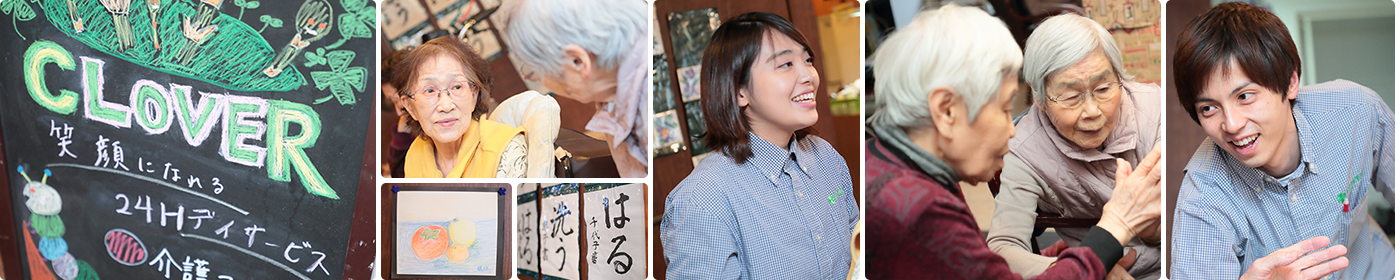 CLOVER
笑顔になれる
24Hデイサービス
介護
はる
洗う
はる
千代子書